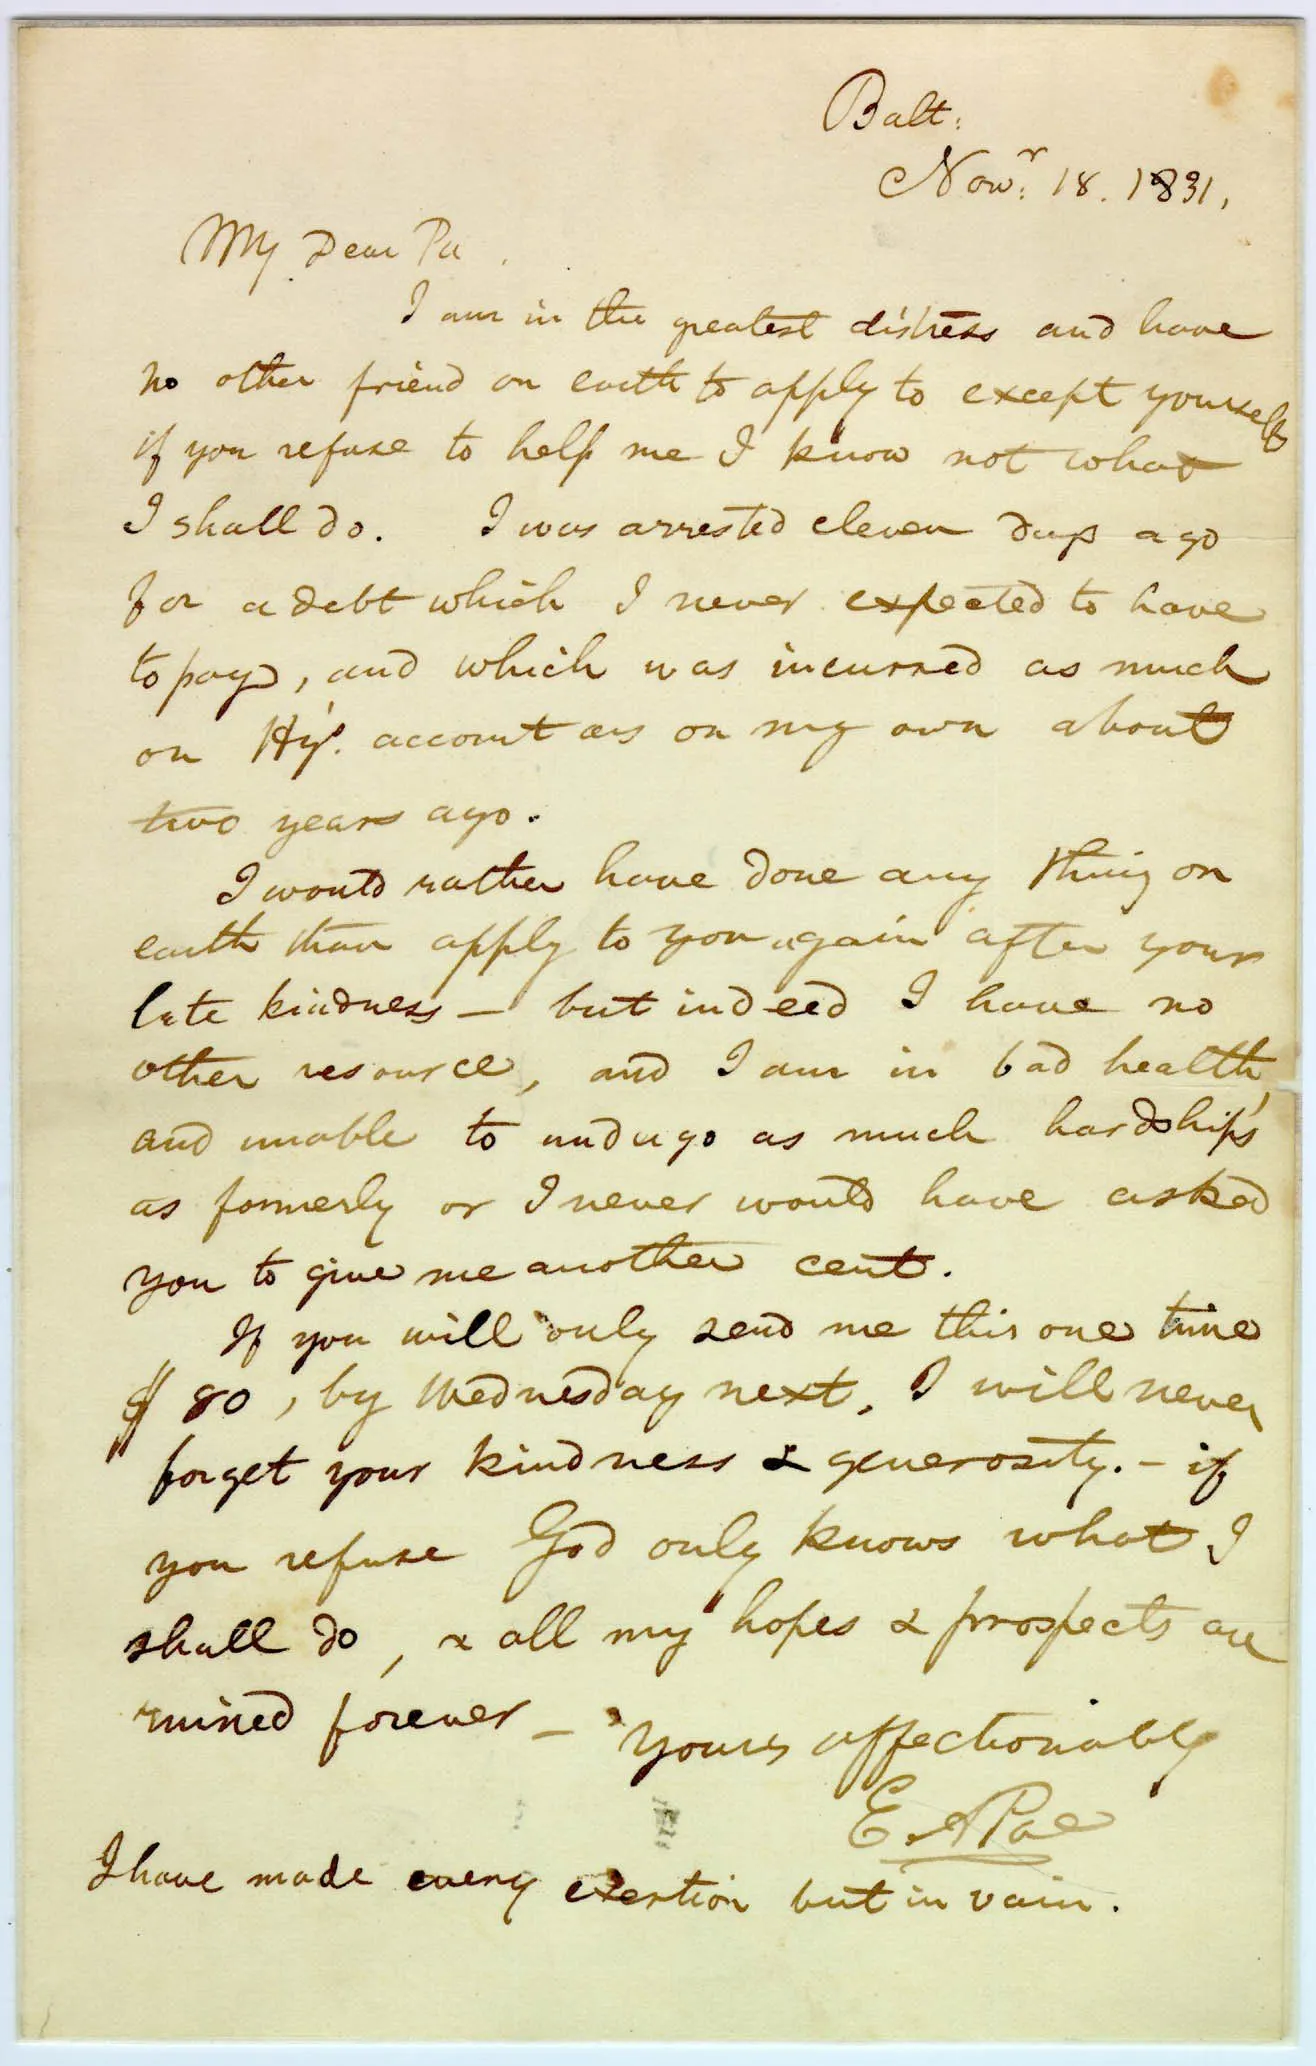 Balt:
Novr: 18. 1831,
My Dear Pa
I am in the greatest distress and have
no other friend on earth to apply to except yourself
if you refuse to help me I know not what
I shall do. I was arrested eleven days ago
for a debt which I never expected to have
to pay, and which was incurred as much
on Hy's. account as on my own about
two years ago.
I would rather have done any thing on
earth than apply to you again after your
late kindness — but indeed I have no
other resource, and I am in bad health,
and unable to undergo as much hardships
as formerly or I never would have asked
you to give me another cent.
If you will only send me this one time
$ 80, by Wednesday next, I will never
forget your kindness & generosity. — if
you refuse God only knows what I
shall do, & all my hopes & prospects are
ruined forever — Yours affectionately
E. A Poe
I have made every exertion but in vain.